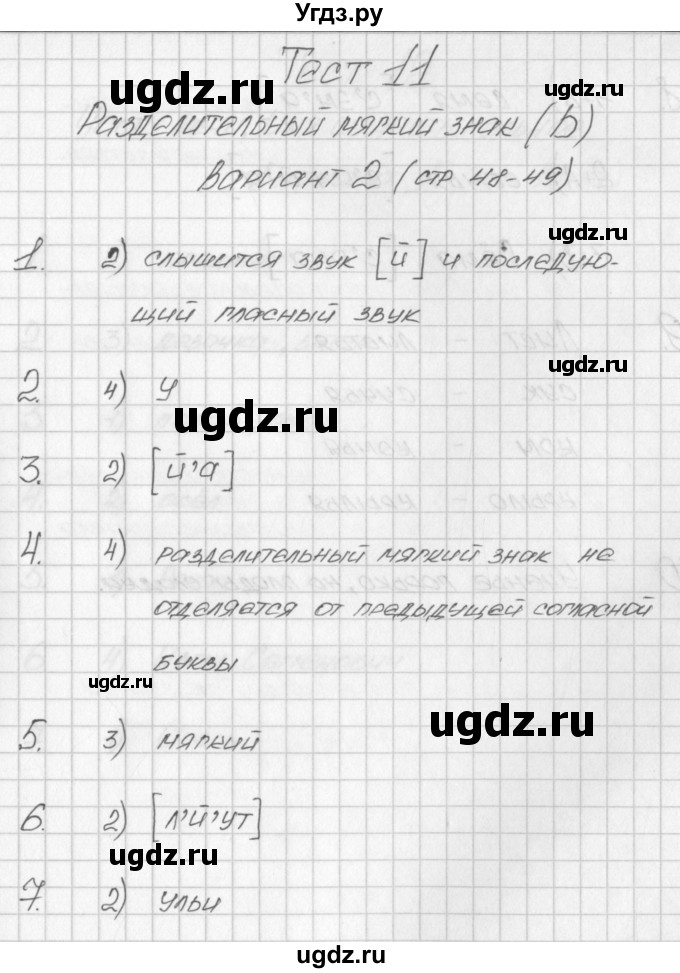 Угдз.ру
Тест 11
ugdz.ru
ugdz.ru
Разделительный мягкий знак (ь)
Вариант 2 (стр 48-49)
ugdz.ru
1. 2) слышится звук [й] и последую-
щий гласный звук
ugdz.ru
2. 4) У
ugdz.ru
3. 2) [й'а]
4. 4) разделительный мягкий знак не
отделяется от предыдущей согласной
буквы
ugdz.ru
ugdz.ru
5. 3) мягкий
6. 2) [л'й'ут]
ugdz.ru
7. 2) ульи
ugdz.ru